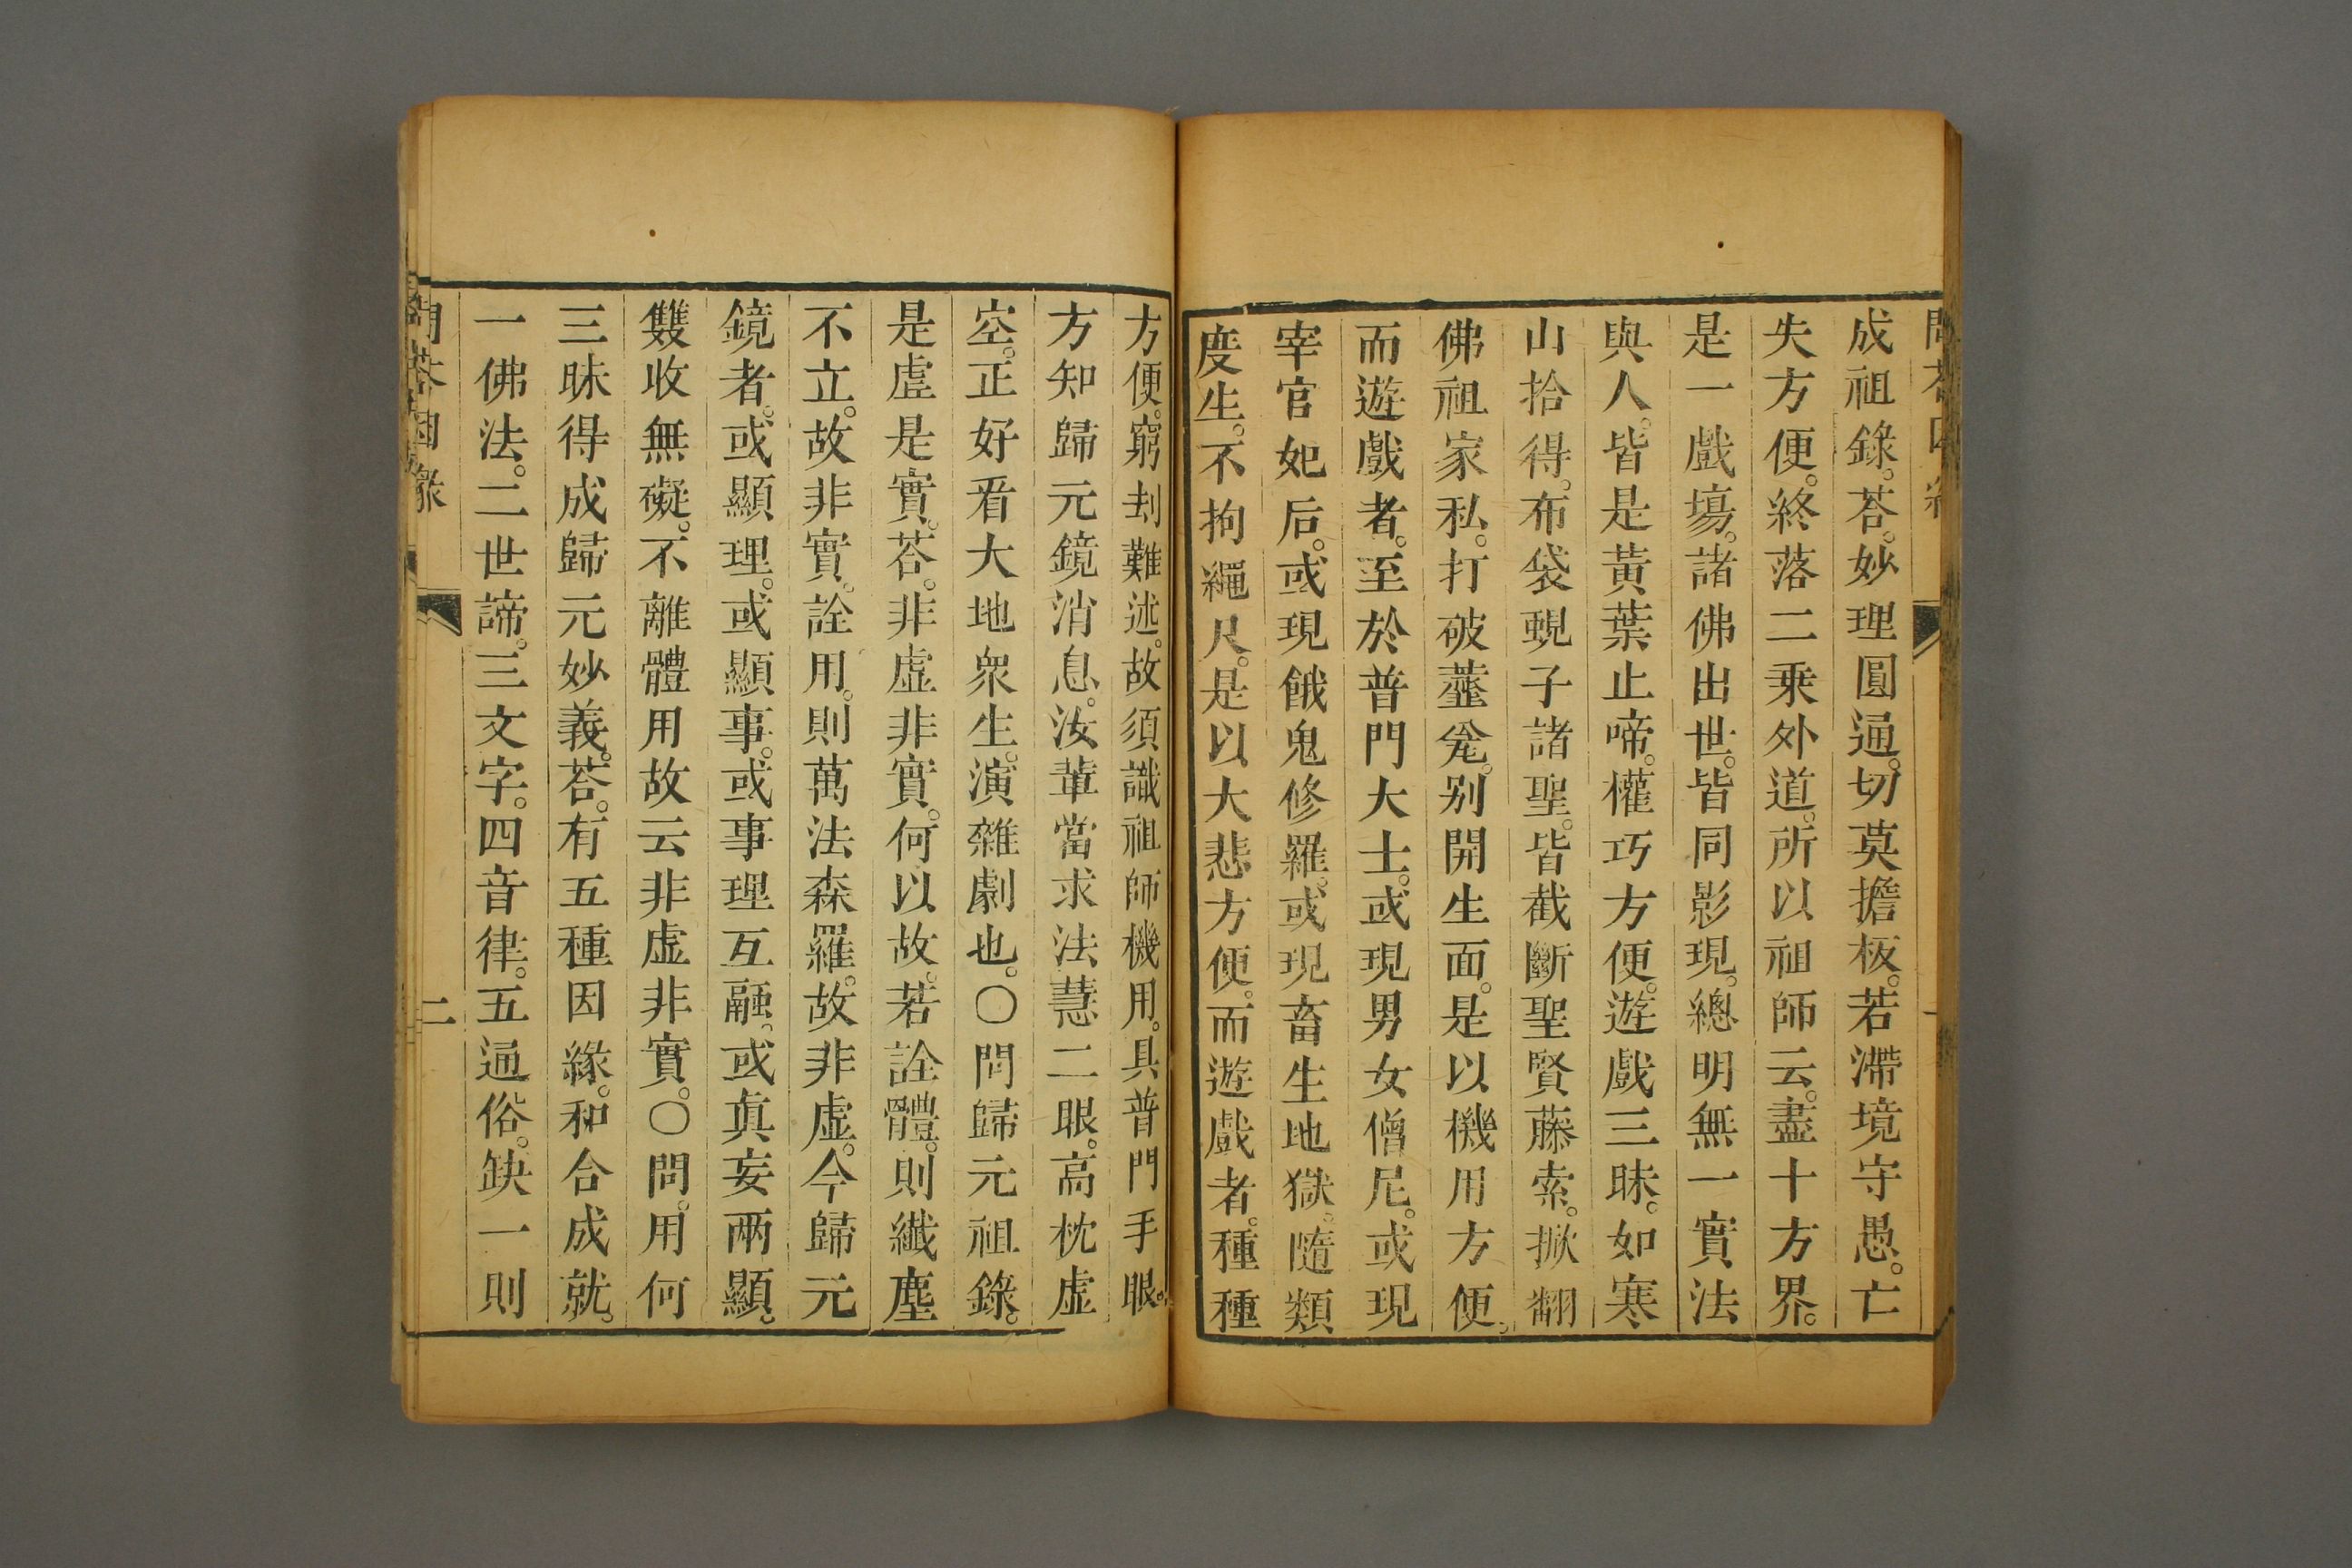 成祖錄。荅。妙理圓通。切莫擔板。若滯境守愚。亡
失方便。終落二乘外道。所以祖師云。盡十方界。
是一戲塲。諸佛出世。皆同影現。總明無一實法
與人。皆是黃葉止啼。權巧方便。遊戲三昧。如寒
山拾得。布袋蜆子諸聖。皆截斷聖賢藤索。掀翻
佛祖家私。打破虀瓮。别開生面。是以機用方便。
而遊戲者。至於普門大士。或現男女僧尼。或現
宰官妃后。或現餓鬼修羅。或現畜生地獄。隨類
度生。不拘繩尺。是以大悲方便。而遊戲者。種種
方便。窮刦難述。故須識祖師機用。具普門手眼。
方知歸元鏡消息。汝輩當求法慧二眼。高枕虚
空。正好看大地衆生。演雜劇也。〇問歸元祖錄。
是虚是實。荅。非虚非實。何以故。若詮體。則纖塵
不立。故非實。詮用。則萬法森羅。故非虚。今歸元
鏡者。或顯理。或顯事。或事理互融。或眞妄兩顯。
雙收無礙。不離體用故云非虚非實。〇問。用何
三昧得成歸元妙義。荅。有五種因緣。和合成就。
一佛法。二世諦。三文字。四音律。五通俗。缺一則
問荅因緣
二